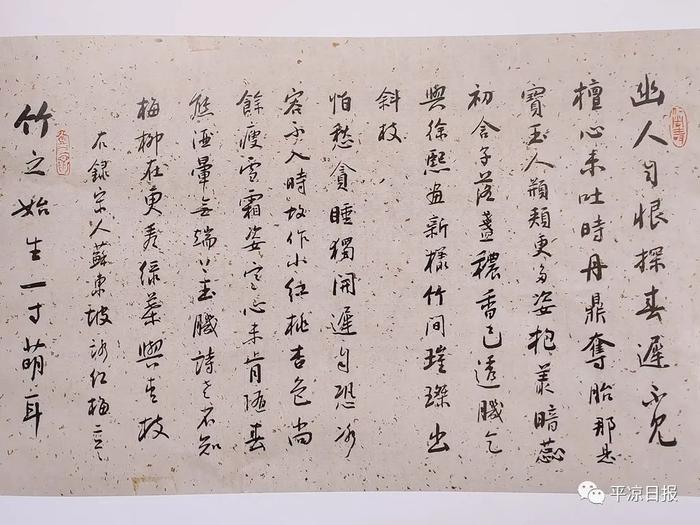 幽人自恨探春遲不見
檀心未吐時丹鼎奪胎那是
寶玉人頩頰更多姿抱叢暗蕊
初含子落盞穠香已透肌乞
與徐熙畫新樣竹間璀璨出
斜枝
怕愁貪睡獨開遲自恐冰
容不入時故作小紅桃杏色尚
餘瘦雪霜姿寒心未肯隨春
態酒暈無端上玉肌詩老不知
梅柳在更看綠葉與青枝
右錄宋人蘇東坡詠紅梅
竹之始生一寸萌耳
平凉日报